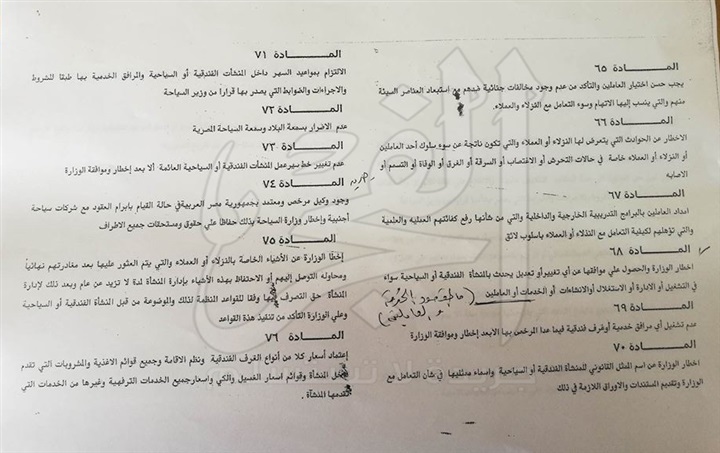 المـــــادة ٦٥
يجب حسن اختيار العاملين والتأكد من عدم وجود مخالفات جنائية ضدهم مع استبعاد العناصر السيئة
منهم والتي ينسب إليها الاتهام وسوء التعامل مع النزلاء والعملاء.
المـــــادة ٦٦
الاخطار عن الحوادث التي يتعرض لها النزلاء أو العملاء والتي تكون ناتجة عن سوء سلوك أحد العاملين
أو النزلاء أو العملاء خاصة في حالات التحرش أو الاغتصاب أو السرقة أو الغرق أو الوفاة أو التسمم أو
الاصابه
المـــــادة ٦٧
امداد العاملين بالبرامج التدريبية الخارجية والداخلية والتي من شأنها رفع كفائتهم العمليه والعلمية
والتي تؤهلهم لكيفية التعامل مع النزلاء أو العملاء باسلوب لائق
المـــــادة ٦٨
اخطار الوزارة والحصول علي موافقها عن أي تغيير أو تعديل يحدث بالمنشأة الفندقية أو السياحية سواء
في التشغيل أو الادارة أو الاستغلال أوالانشاءات أو الخدمات أو العاملين (ما المقصود
العاملين)
المـــــادة ٦٩
عدم تشغيل أي مرافق خدمية أوغرف فندقية فيما عدا المرخص بها الابعد إخطار وموافقة الوزارة
المـــــادة ٧٠
اخطار الوزارة من اسم الممثل القانوني للمنشأة الفندقية أو السياحية واسماء ممثليها في شأن التعامل مع
الوزارة وتقديم المستندات والاوراق اللازمة في ذلك
المـــــادة ٧١
الالتزام بمواعيد السهر داخل المنشآت الفندقية أو السياحية والمرافق الخدمية بها طبقا للشروط
والاجراءات والضوابط التي يصدر بها قراراً من وزير السياحة
المـــــادة ٧٢
عدم الاضرار بسمعة البلاد وسمعة السياحة المصرية
المـــــادة ٧٣
عدم تغيير خط سيرعمل المنشآت الفندقية أو السياحية العائمة ألا بعد إخطار وموافقة الوزارة
المـــــادة ٧٤
وجود وكيل مرخص ومعتمد بجمهورية مصر العربيةفي حالة القيام بابرام العقود مع شركات سياحة
أجنبية وإخطار وزارة السياحة بذلك حفاظا علي حقوق ومستحقات جميع الاطراف
المـــــادة ٧٥
إخطا الوزارة عن الأشياء الخاصة بالنزلاء أو العملاء والتي يتم العثور عليها بعد مغادرتهم نهائياً
ومحاوله التوصل إليهم أو الاحتفاظ بهذه الأشياء بإدارة المنشأة لمدة لا تزيد عن عام وبعد ذلك لإدارة
المنشأة حق التصرف فيها وفقا للقواعد النظمة لذلك والموضوعة من قبل المنشأة الفندقية أو السياحية
وعلي الوزارة التأكد من تنفيذ هذه القواعد
المـــــادة ٧٦
إعتماد أسعار كلا من أنواع الغرف الفندقية ونظم الاقامة وجميع قوائم الاغذية والمشروبات التي تقدم
داخل المنشأة وقوائم اسعار الغسيل والكي واسعارجميع الخدمات الترفهية وغيرها من الخدمات التي
تقدمها المنشآة .